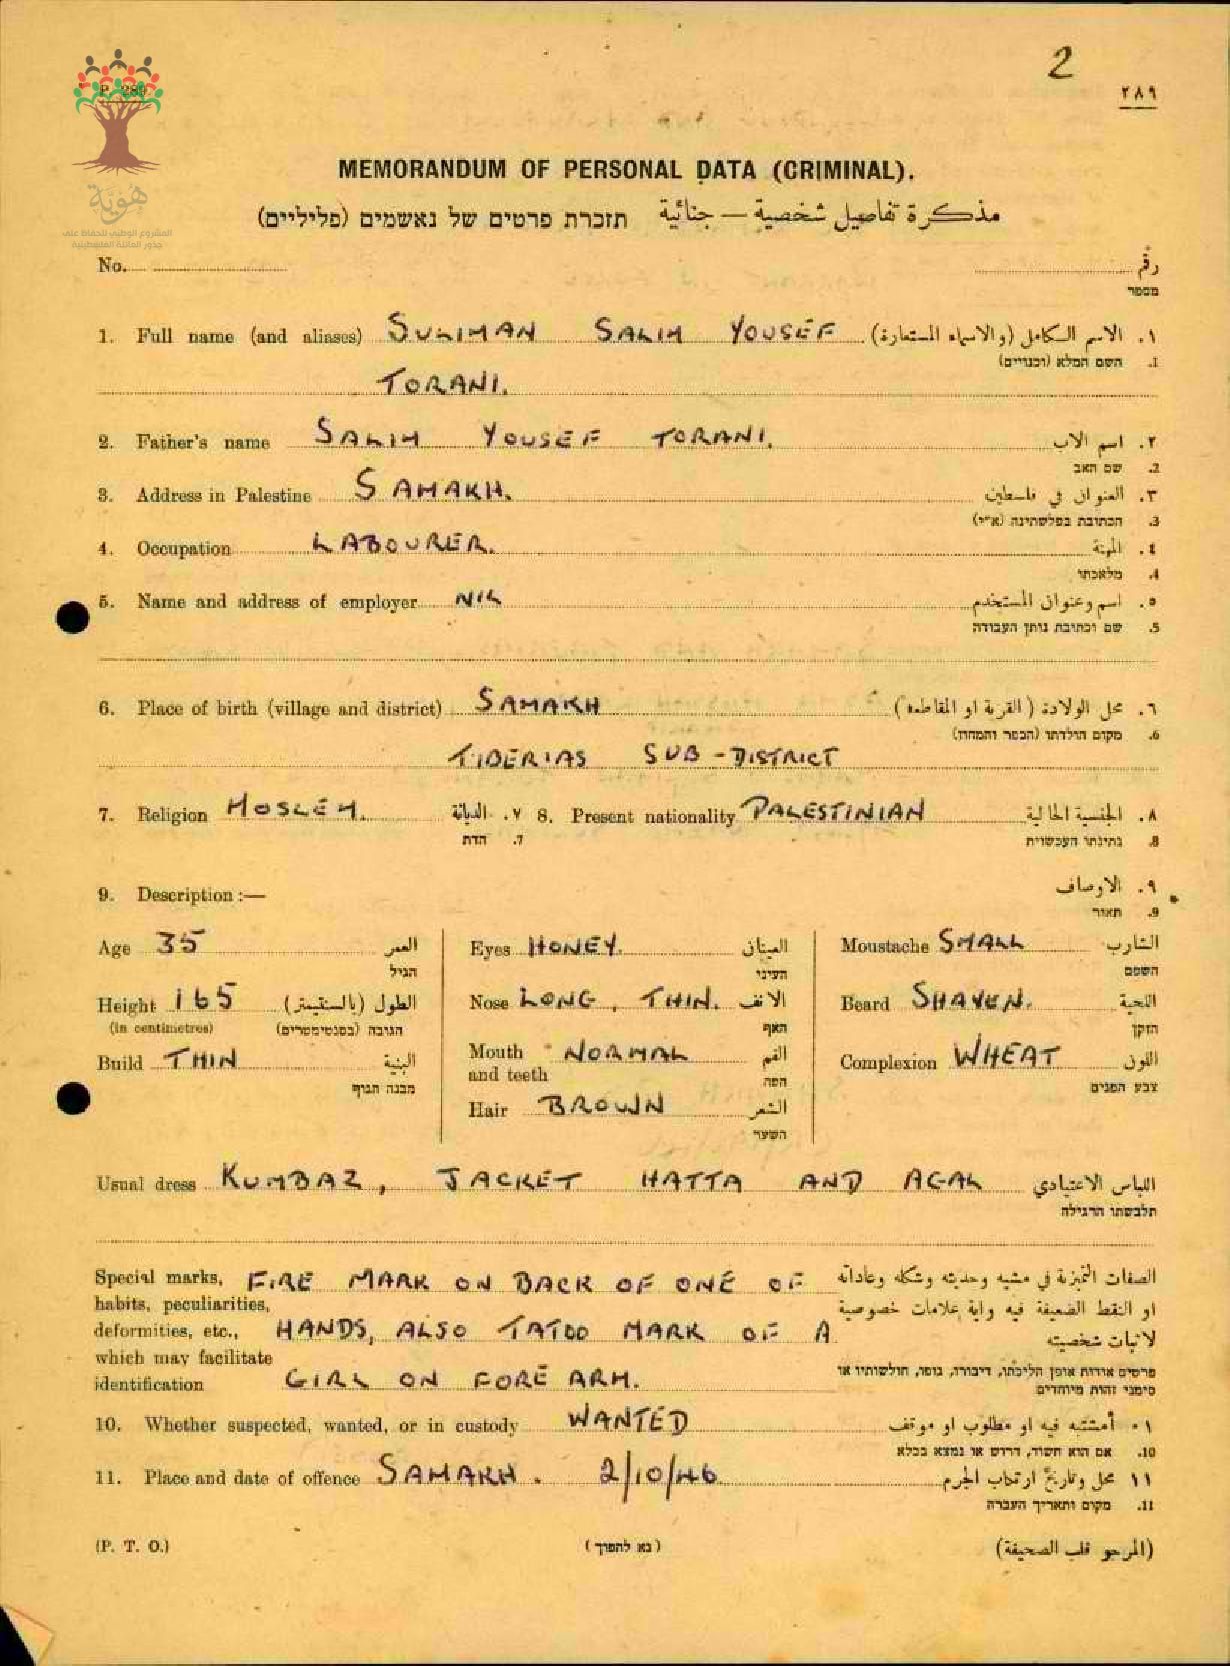 2
P. 289.
٢٨٩
هُوِيَّة
المشروع الوطني للحفاظ على
جذور العائلة الفلسطينية
MEMORANDUM OF PERSONAL DATA (CRIMINAL).
مذكرة تفاصيل شخصية — جنائية תזכרת פרטים של נאשמים (פליליים)
No. رقم
מספר
1. Full name (and aliases) SULIMAN SALIM YOUSEF ١. الاسم الكامل (والاسماء المستعارة)
1. השם המלא (וכנויים)
TORANI.
2. Father's name SALIM YOUSEF TORANI. ٢. اسم الاب
2. שם האב
3. Address in Palestine SAMAKH. ٣. العنوان في فلسطين
3. הכתובת בפלשתינה (א״י)
4. Occupation LABOURER. ٤. المهنة
4. מלאכתו
5. Name and address of employer NIL ٥. اسم وعنوان المستخدم
5. שם וכתובת נותן העבודה
6. Place of birth (village and district) SAMAKH ٦. محل الولادة (القرية او المقاطعة)
6. מקום הולדתו (הכפר והמחוז)
TIBERIAS SUB-DISTRICT
7. Religion MOSLEM. ٧. الديانة 8. Present nationality PALESTINIAN ٨. الجنسية الحالية
7. הדת 8. נתינתו העכשוית
9. Description :— ٩. الاوصاف
9. תאור
Age 35 العمر Eyes HONEY. العينان Moustache SMALL الشارب
הגיל העינים השפם
Height 165 الطول (بالسنتيمتر) Nose LONG, THIN. الانف Beard SHAVEN. اللحية
(in centimetres) הגובה (בסנטימטרים) האף הזקן
Build THIN البنية Mouth NORMAL الفم Complexion WHEAT اللون
and teeth
מבנה הגוף הפה צבע הפנים
Hair BROWN الشعر
השער
Usual dress KUMBAZ, JACKET HATTA AND AGAL اللباس الاعتيادي
תלבשתו הרגילה
Special marks, FIRE MARK ON BACK OF ONE OF الصفات المميزة في مشيه وحديثه وشكله وعاداته
habits, peculiarities, او النقط الضعيفة فيه واية علامات خصوصية
deformities, etc., HANDS, ALSO TATOO MARK OF A لاثبات شخصيته
which may facilitate פרטים אודות אופן הליכתו, דיבורו, גופו, חולשותיו או
identification GIRL ON FORE ARM. סימני זהות מיוחדים
10. Whether suspected, wanted, or in custody WANTED ١٠ أمشتبه فيه او مطلوب او موقف
10. אם הוא חשוד, דרוש או נמצא בכלא
11. Place and date of offence SAMAKH. 2/10/46 ١١ محل وتاريخ ارتكاب الجرم
11. מקום ותאריך העברה
(P. T. O.) (נא להפוך) (المرجو قلب الصحيفة)